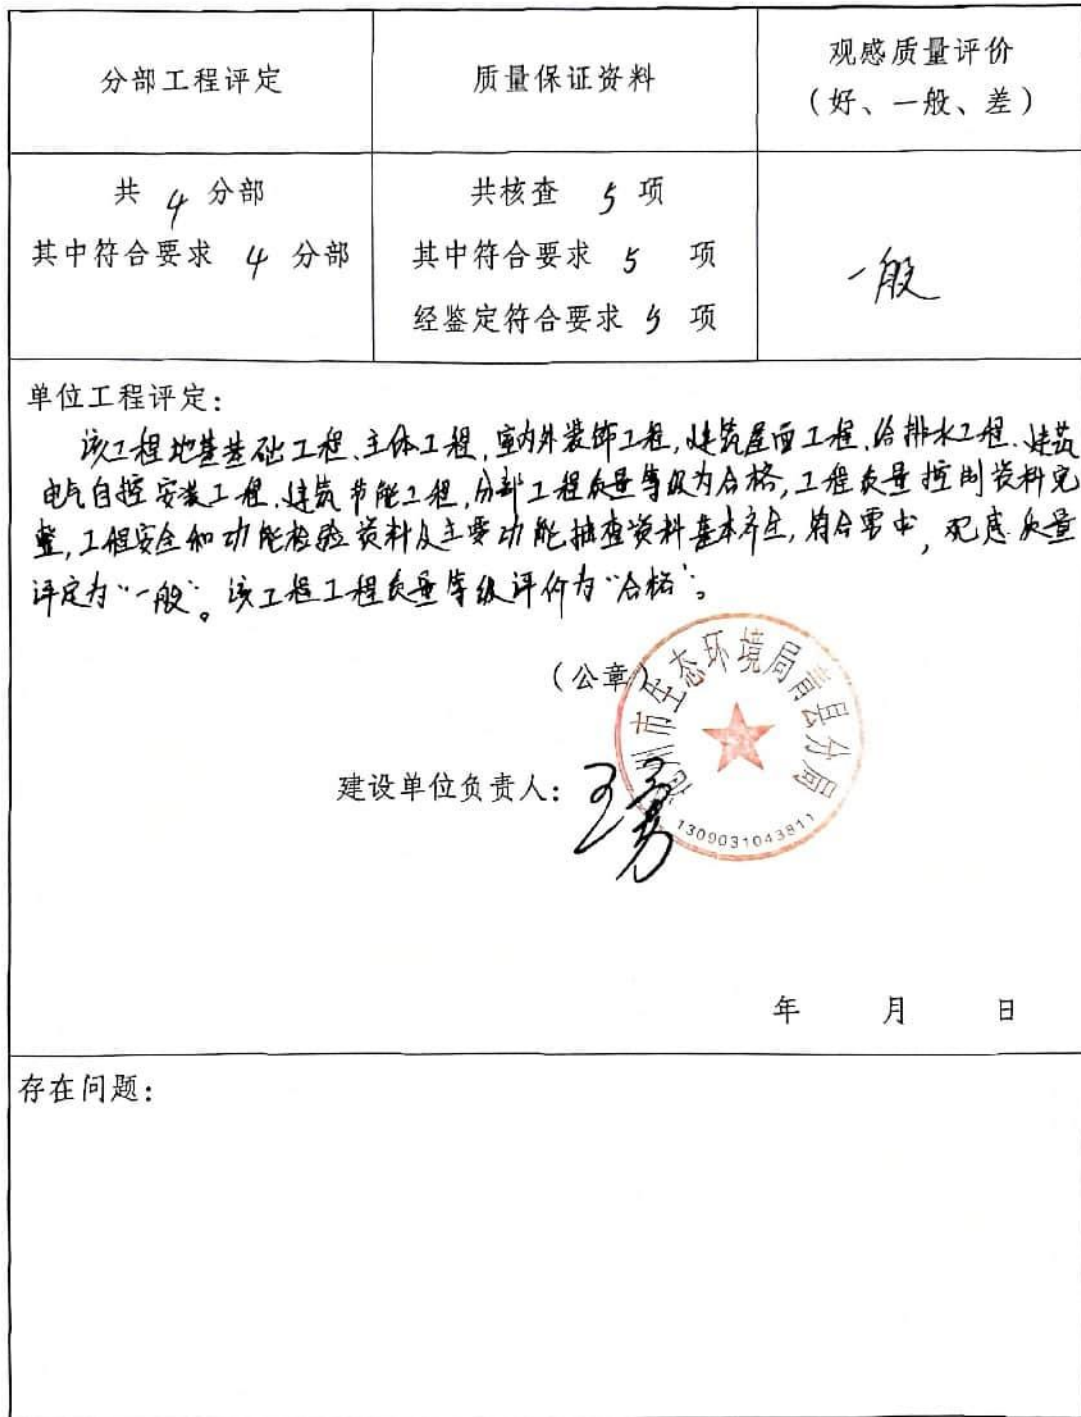 分部工程评定
质量保证资料
观感质量评价
（好、一般、差）
共 4 分部
其中符合要求 4 分部
共核查 5 项
其中符合要求 5 项
经鉴定符合要求 5 项
一般
单位工程评定：
该工程地基基础工程、主体工程、室内外装饰工程，建筑屋面工程、给排水工程、建筑
电气自控安装工程、建筑节能工程，分部工程质量等级为合格，工程质量控制资料完
整，工程安全和功能检验资料及主要功能抽查资料基本齐全，符合要求，观感质量
评定为“一般”。该工程工程质量等级评价为“合格”。
（公章）
沧州市生态环境局青县分局
建设单位负责人：王勇
1309031043811
年 月 日
存在问题：